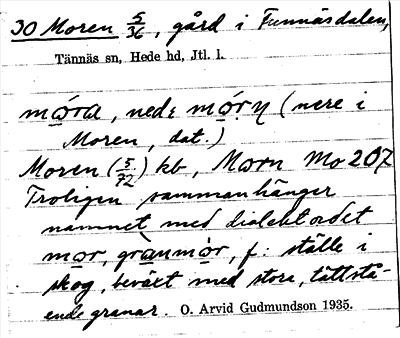 30 Moren 5/36, gård i Funnäsdalen,
Tännäs sn, Hede hd, Jtl. l.
mo̱ra, ned i mó̱ry (nere i
Moren, dat.)
Moren (5/72) kb, Morn Mo 207
Troligen sammanhänger
namnet med dialektordet
mo̱r, gra̱nmò̱r, f: ställe i
skog, beväxt med store, tättstå-
ende granar. O. Arvid Gudmundson 1935.